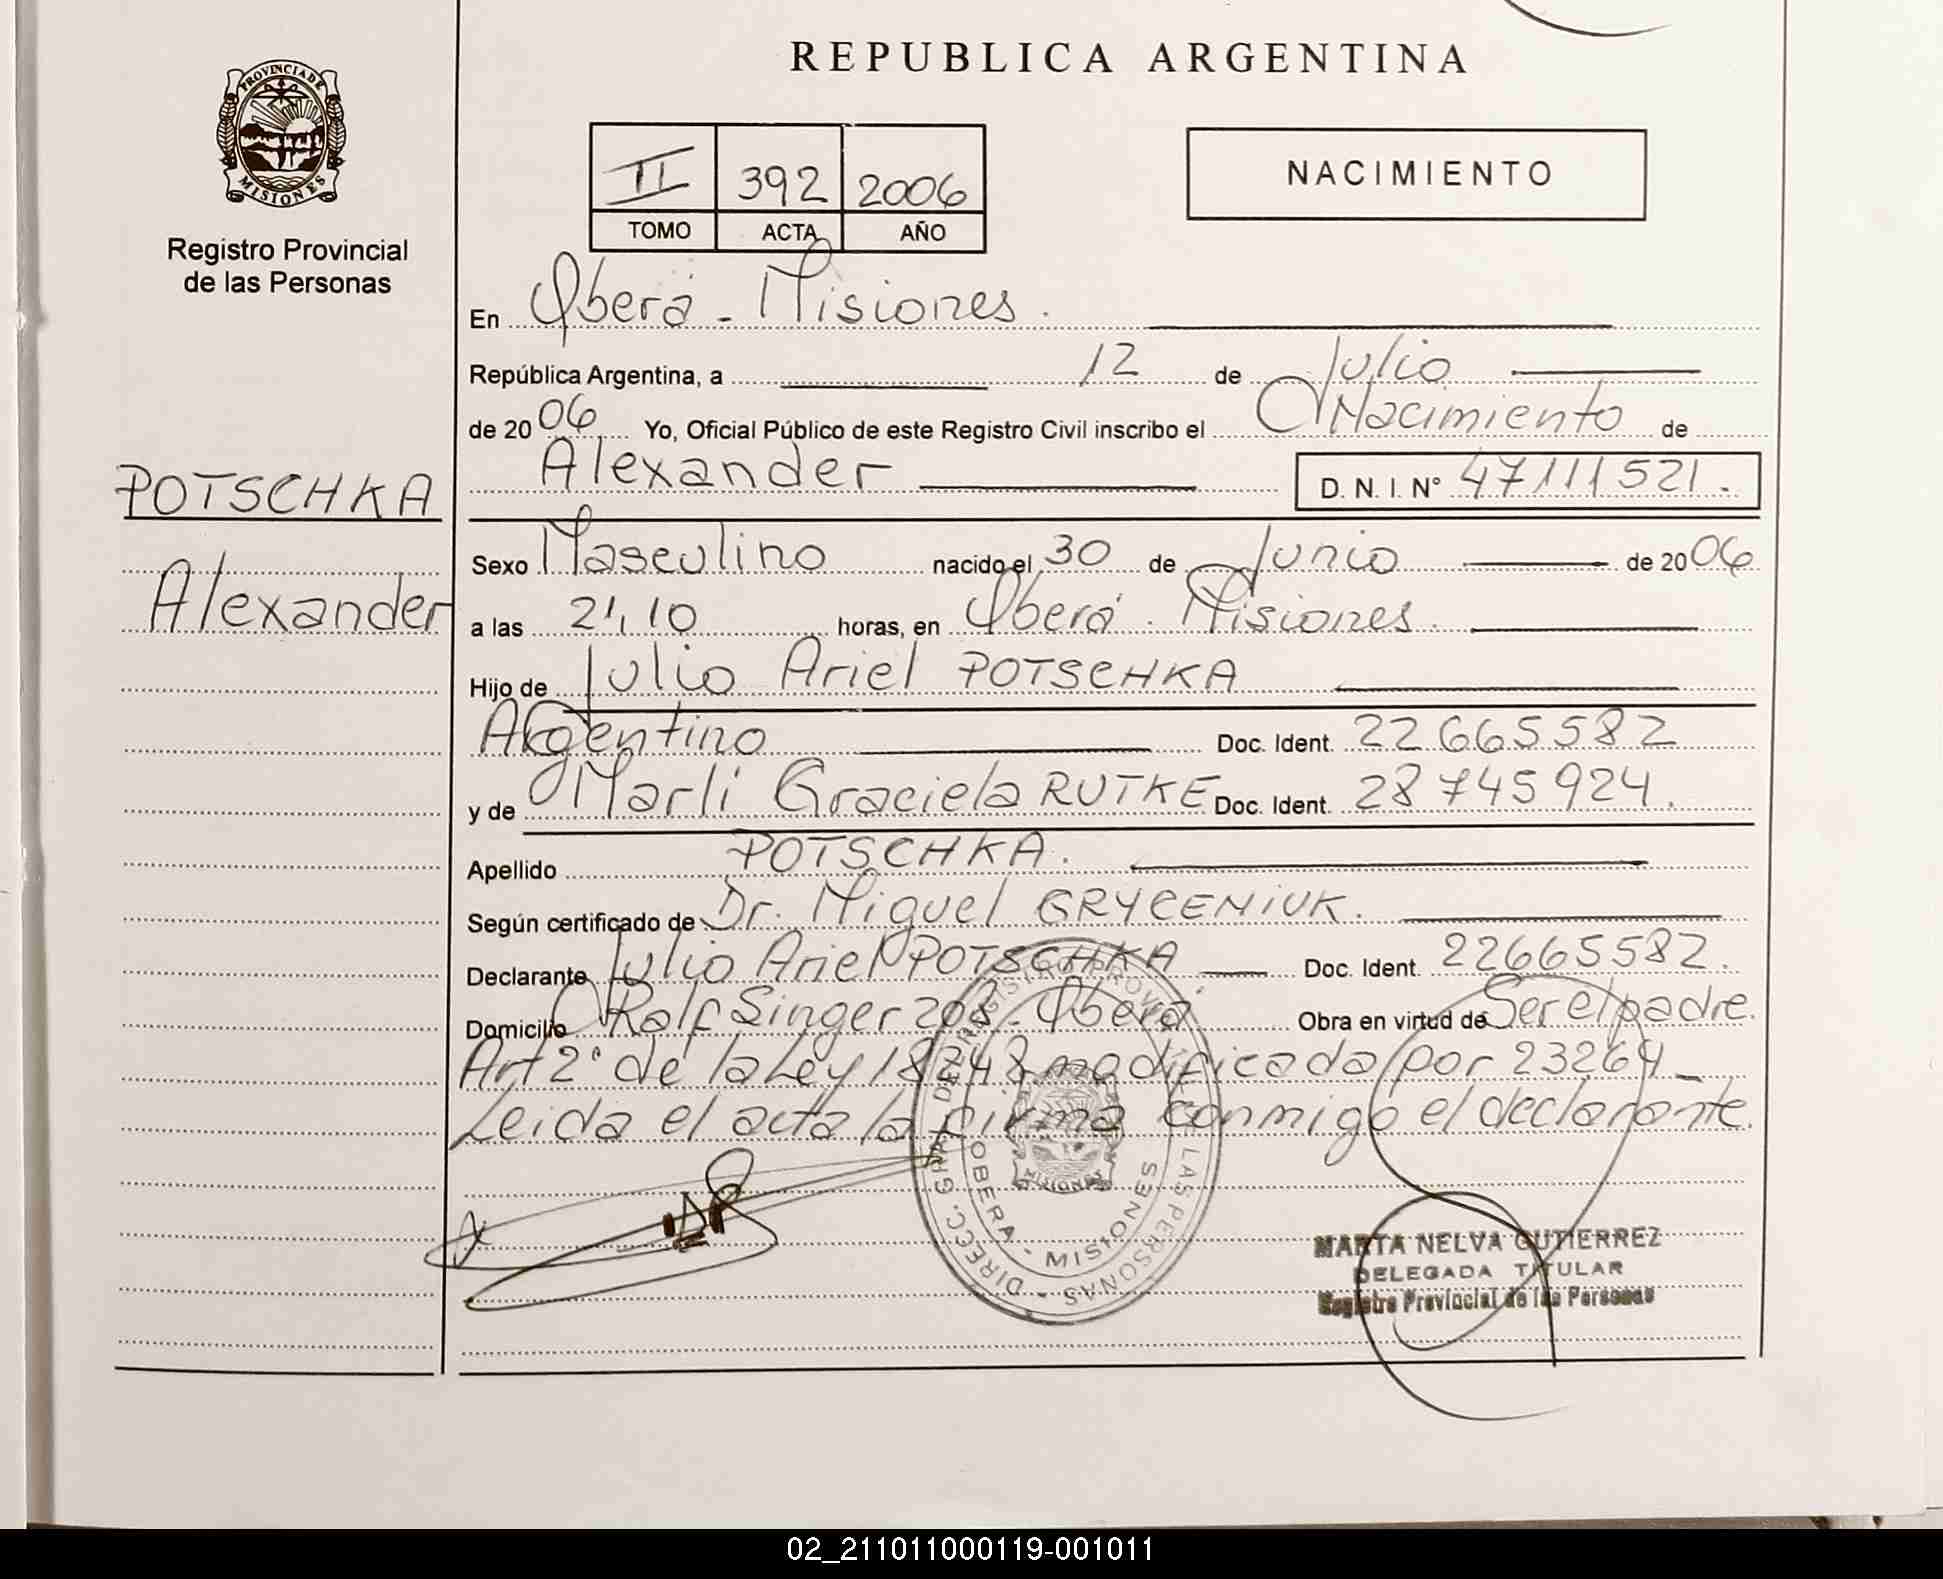 REPUBLICA ARGENTINA
PROVINCIA DE MISIONES
Registro Provincial
de las Personas
II 392 2006
TOMO ACTA AÑO
NACIMIENTO
En Oberá - Misiones.
República Argentina, a 12 de Julio
de 2006 Yo, Oficial Público de este Registro Civil inscribo el Nacimiento de
POTSCHKA
Alexander
Alexander D. N. I. N° 47111521.
Sexo Masculino nacido el 30 de Junio de 2006
a las 21,10 horas, en Oberá. Misiones.
Hijo de Julio Ariel POTSCHKA
Argentino Doc. Ident. 22665582
y de Marli Graciela RUTKE Doc. Ident. 28745924.
Apellido POTSCHKA.
Según certificado de Dr. Miguel GRYCENIUK.
Declarante Julio Ariel POTSCHKA Doc. Ident. 22665582.
Domicilio Rolf Singer 208 - Oberá Obra en virtud de Ser el padre.
Art 2° de la Ley 18248 modificada por 23264 -
Leida el acta la firma conmigo el declarante.
DIRECC. GRAL. DEL REGISTRO PROV. DE LAS PERSONAS
OBERA - MISIONES
MISIONES
MARTA NELVA GUTIERREZ
DELEGADA TITULAR
Registro Provincial de las Personas
02_211011000119-001011